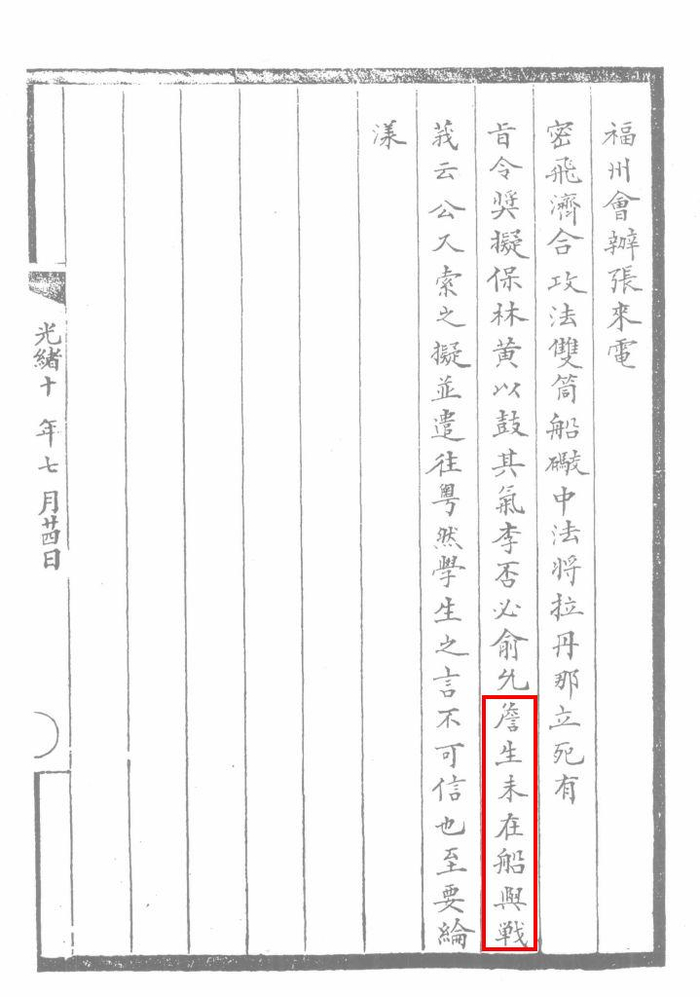 福州會辦張來電
密飛濟合攻法雙筒船礮中法將拉丹那立死有
旨令奬擬保林黄以鼓其氣李否必俞允詹生未在船與戰
莪云公又索之擬並遣往粤然學生之言不可信也至要綸
漾
光緒十年七月廿四日